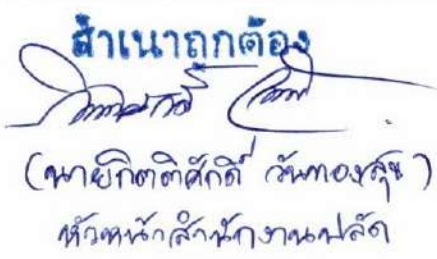 สำเนาถูกต้อง
(นายกิตติศักดิ์ วันทองสุข)
หัวหน้าสำนักงานปลัด